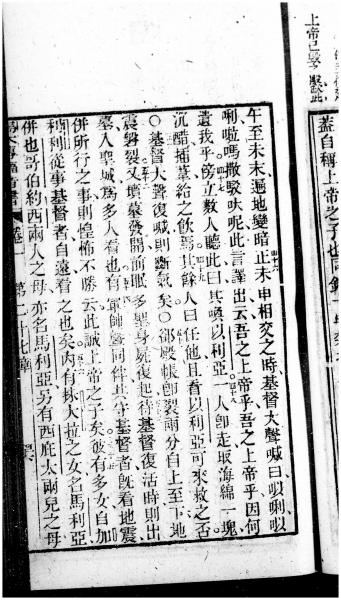 蓋自稱上帝之子也同釘
午至未末遍地變暗止未申相交之時基督大聲喊曰唭唎唭
唎㘔嗎撒駁呔呢此言譯出云吾之上帝乎吾之上帝乎因何
遺我乎傍立數人聽此曰其喚以利亞一人即走取海綿一塊
沉醋插葦給之飲焉其餘人曰任他且看以利亞可來救之否
〇基督大聲復喊則斷氣矣〇卻殿帳即裂兩分自上至下地
震磐裂又墳墓發開前眠多聖身屍復起待基督復活時則出
墓入聖城為多人看也有軍師暨同伴共守基督者既看地震
併所行之事則惶怖不勝云此誠上帝之子矣彼有多女自加
利利從事基督者自遠看之也矣內有抹大拉之女名馬利亞
併也哥伯約西兩人之母亦名馬利亞另有西庇太兩兒之母
卷一 第二十七章